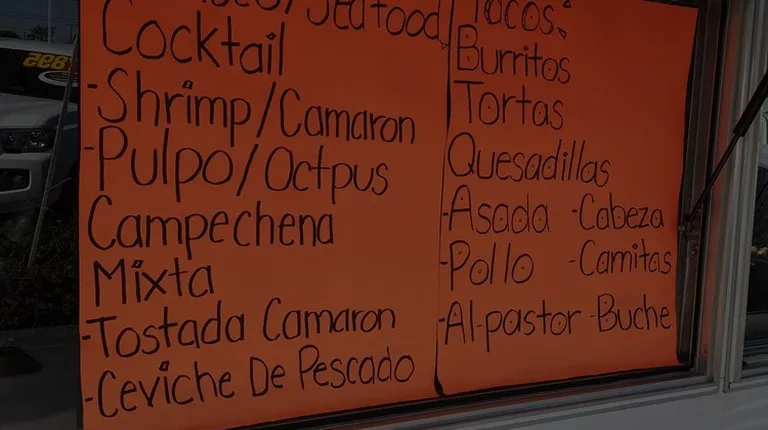 /Seafood
Cocktail
-Shrimp/Camaron
-Pulpo/Octpus
Campechena
Mixta
-Tostada Camaron
-Ceviche De Pescado
Tacos
Burritos
Tortas
Quesadillas
-Asada -Cabeza
-Pollo -Carnitas
-Al-pastor -Buche